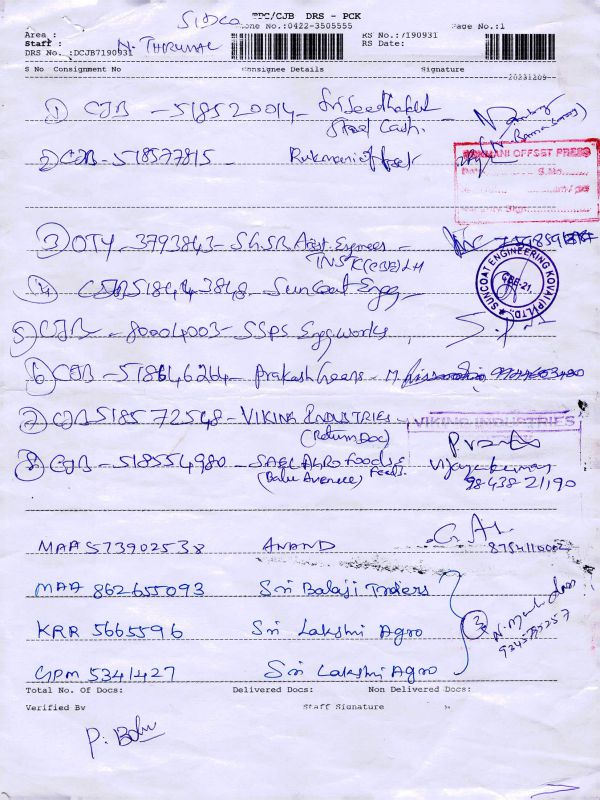 SIDCO
TPC/CJB DRS - PCK
Phone No.:0422-3505555
Page No.:1
Area :
RS No.:/190931
Staff : N. THIRUMAL
RS Date:
DRS No. :DCJB7190931
S No Consignment No Consignee Details Signature
20231209
1 CJB - 518520014 -
Steel Cash.
2 CJB - 518577815 - Rukmani offset
RUKMANI OFFSET PRESS
3 OTY - 3793843 - SGSR
INSK (CBE) LH
4 CJB 518443848 - Suncoat Engg
SUNCOAT ENGINEERING KOVAI (P) LTD.
CBE-21.
5 CJB - 80004003 - SSPS Engg works
6 CJB - 518646264 - Prakash Gears - M.
7 CJB 518572548 - VIKING INDUSTRIES -
(Return Doc)
VIKING INDUSTRIES
8 CJB - 518554980 - SAEL AGRO FOODS &
(Balu Avenue) Feeds.
Vijayakumar
98438-21190
MAA 573902538 ANAND
8754110002
MAA 862655093 Sri Balaji Traders
KRR 5665596 Sri Lakshmi Agro
3
9245795257
GPM 5341427 Sri Lakshmi Agro
Total No. Of Docs: Delivered Docs: Non Delivered Docs:
Verified By Staff Signature
P. Babu